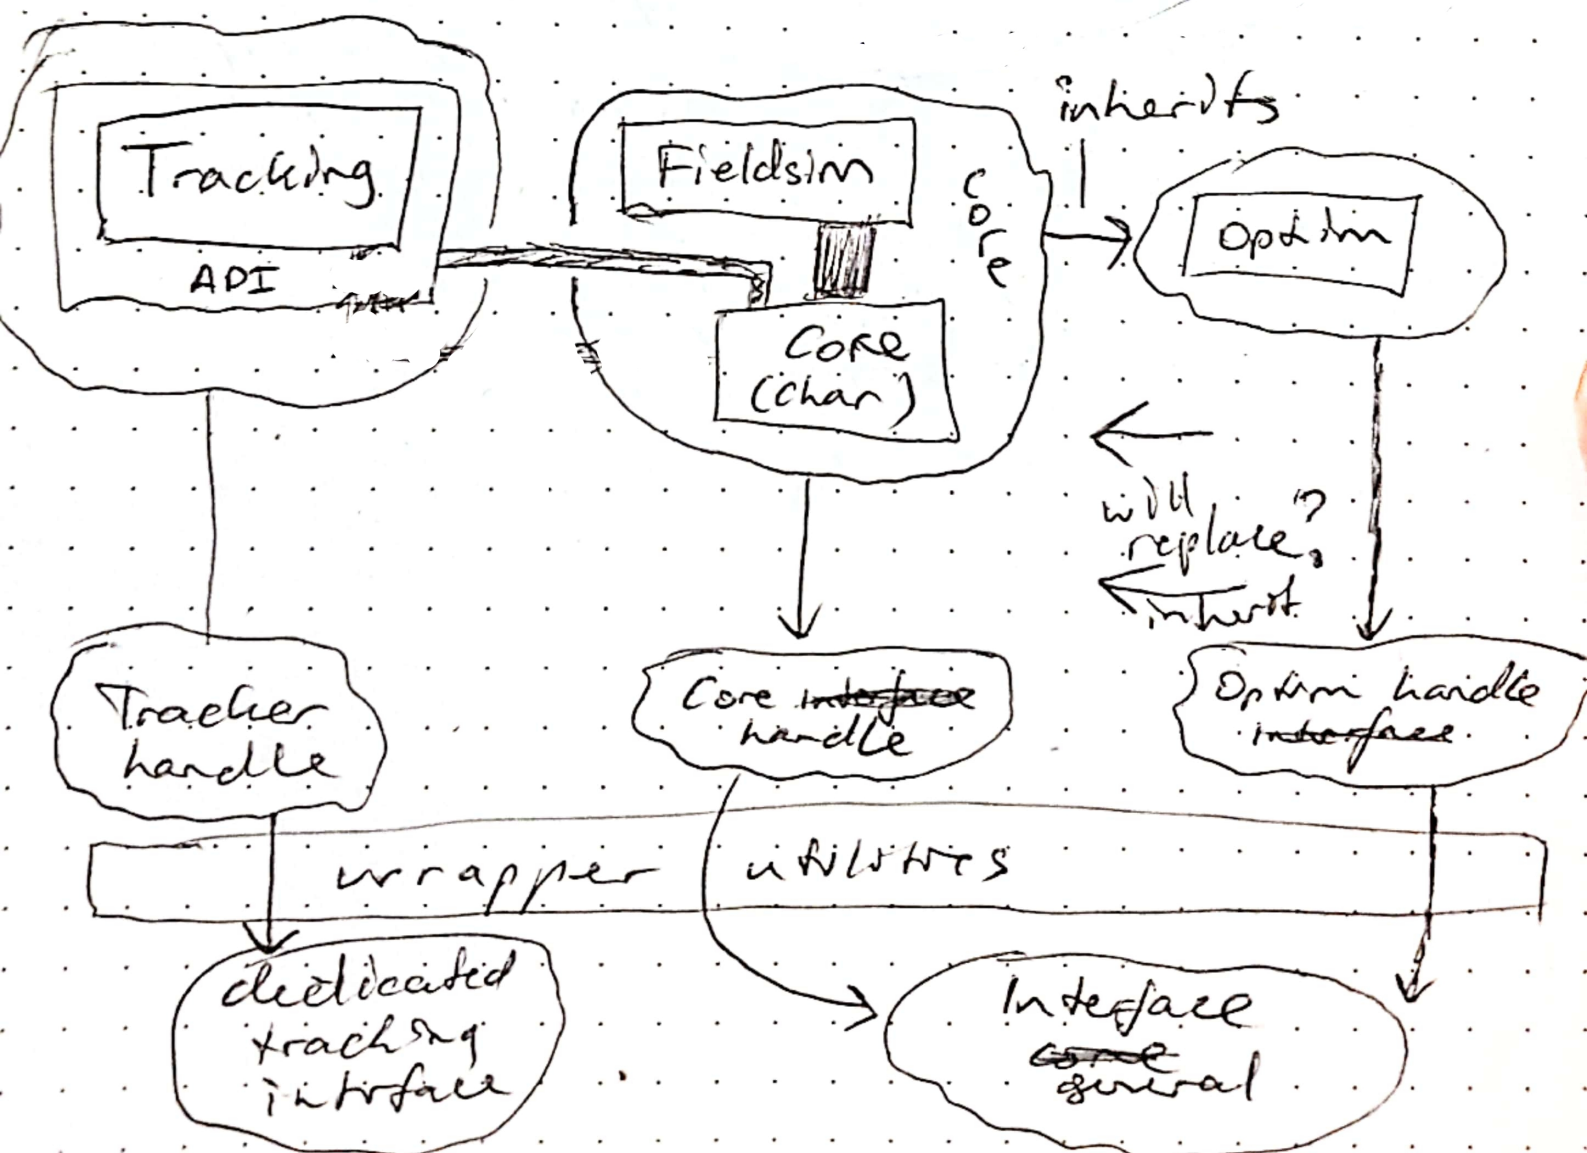 Tracking
API
Fieldsim
Core
Core
(Char)
inherits
Optim
will
replace?
inherit
Tracker
handle
Core interface
handle
Optim handle
interface
wrapper utilities
dedicated
tracking
interface
Interface
core
general